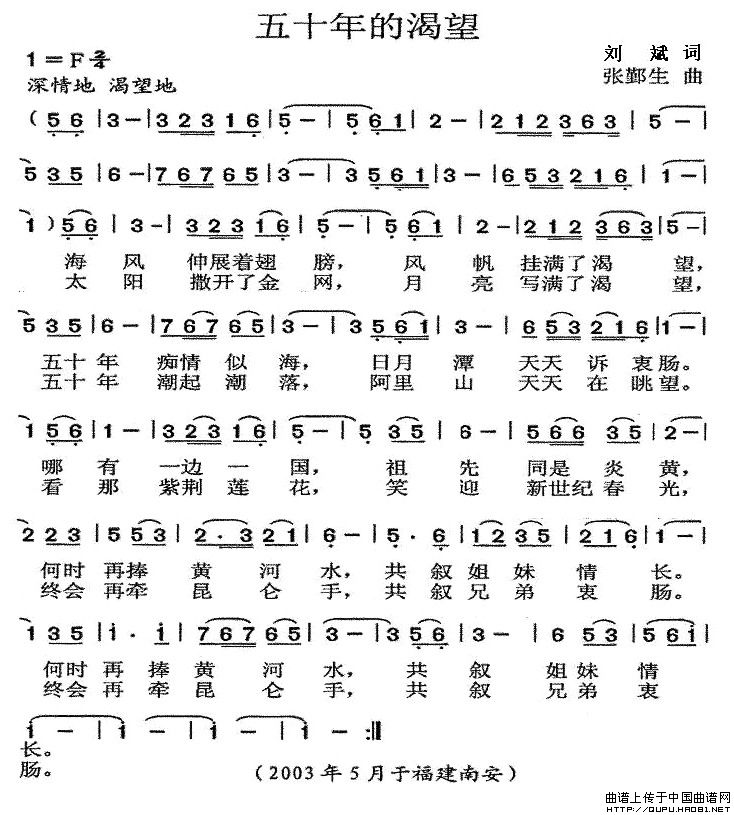 五十年的渴望
1=F 2/4
刘斌 词
深情地 渴望地
张鄞生 曲
(5 6 | 3 - | 3 2 3 1 6 | 5 - | 5 6 1 | 2 - | 2 1 2 3 6 3 | 5 - |
5 3 5 | 6 - | 7 6 7 6 5 | 3 - | 3 5 6 1 | 3 - | 6 5 3 2 1 6 | 1 - |
1 ) 5 6 | 3 - | 3 2 3 1 6 | 5 - | 5 6 1 | 2 - | 2 1 2 3 6 3 | 5 - |
海 风 伸展着翅 膀， 风 帆 挂满了渴 望，
太 阳 撒开了金 网， 月 亮 写满了渴 望，
5 3 5 | 6 - | 7 6 7 6 5 | 3 - | 3 5 6 1 | 3 - | 6 5 3 2 1 6 | 1 - |
五十年 痴情似海， 日月潭 天天诉衷肠。
五十年 潮起潮落， 阿里山 天天在眺望。
1 5 6 | 1 - | 3 2 3 1 6 | 5 - | 5 3 5 | 6 - | 5 6 6 3 5 | 2 - |
哪有 一边一国， 祖先 同是炎黄，
看那 紫荆莲花， 笑迎 新世纪春光，
2 2 3 | 5 5 3 | 2 · 3 2 1 | 6 - | 5 · 6 | 1 2 3 5 | 2 1 6 | 1 - |
何时再捧黄河水， 共叙姐妹情长。
终会再牵昆仑手， 共叙兄弟衷肠。
1 3 5 | i · i | 7 6 7 6 5 | 3 - | 3 5 6 | 3 - | 6 5 3 | 5 6 i |
何时再捧黄河水， 共叙姐妹情
终会再牵昆仑手， 共叙兄弟衷
i - | i - | i - | i - :||
长。
肠。
(2003年5月于福建南安)
曲谱上传于中国曲谱网
http://QUPU.HAO81.NET